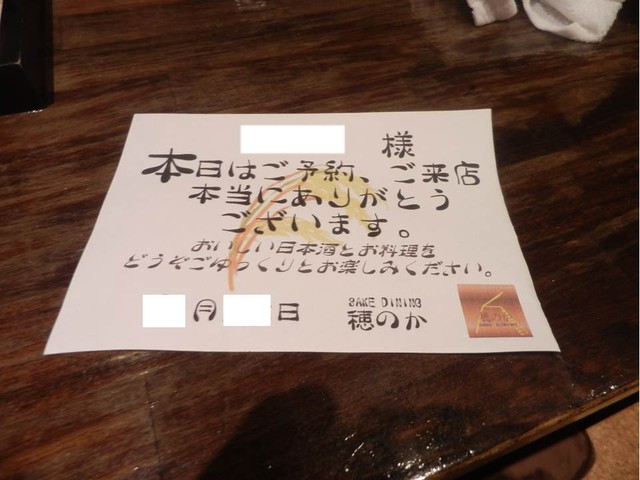 様
本日はご予約、ご来店
本当にありがとう
ございます。
おいしい日本酒とお料理を
どうぞごゆっくりとお楽しみください。
月 日
SAKE DINING
穂のか
穂のか